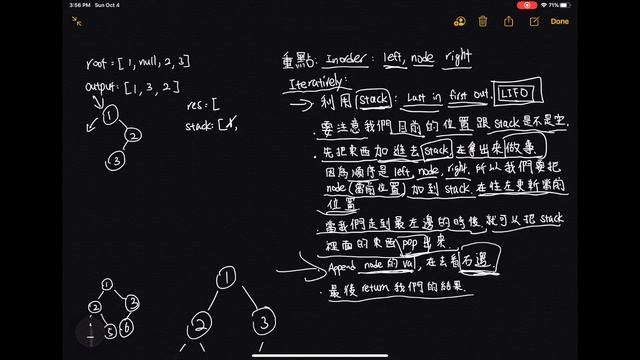 3:56 PM Sun Oct 4
71%
Done
root = [ 1, null, 2, 3 ]
output = [ 1, 3, 2 ]
1
2
3
res = [
stack = [ 1,
重點: Inorder: left, node right
Iteratively:
→ 利用 stack: Last in first out. LIFO
. 要注意我們目前的位置 跟 stack 是不是空.
. 先把東西加進去 stack, 在拿出來做事.
因為順序是 left, node, right. 所以我們要把
node (當前位置) 加到 stack. 在往左更新當前
位置
. 當我們走到最左邊的時後. 就可以把 stack
裡面的東西 pop 出來.
. Append node 的 val, 在去看右邊.
. 最後 return 我們的結果.
1
2 3
5 6
1
2 3